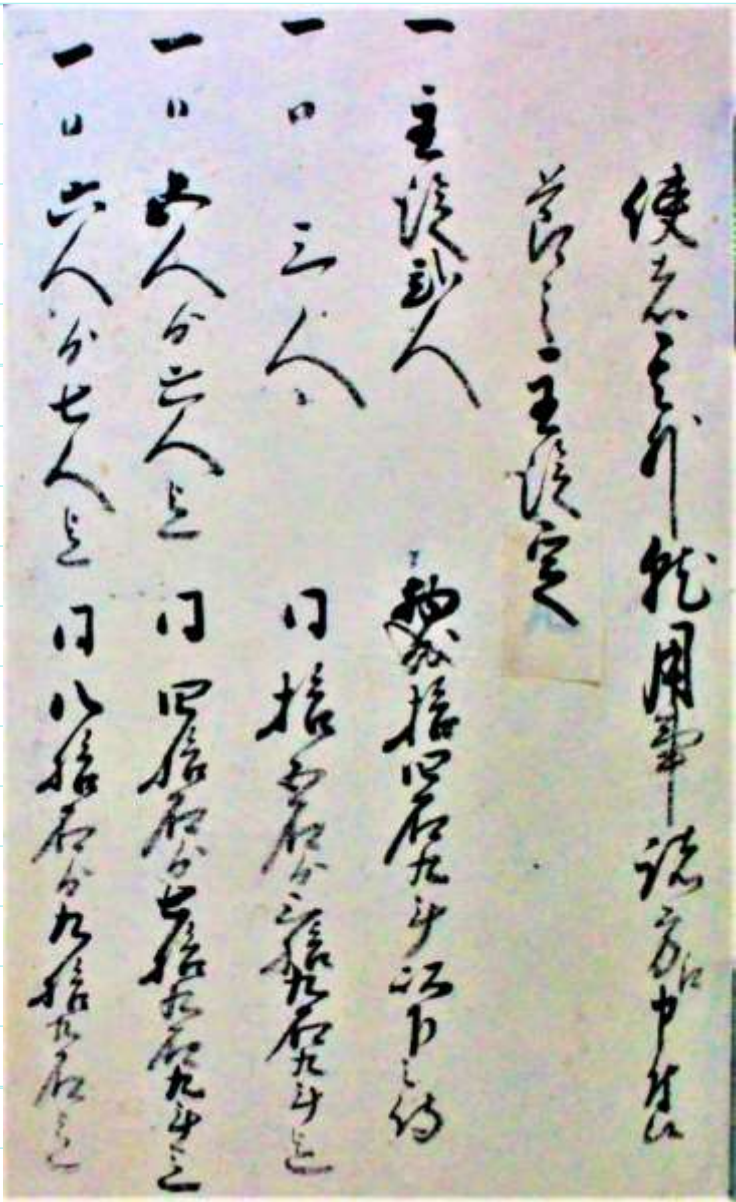 使者其外就用事諸方江申付候
節之主従定
一 主従弐人 物成拾四石九斗以下之侍
一 同 三人 同 拾五石ゟ三拾九石九斗迄
一 同 五人ゟ六人迄 同 四拾石ゟ七拾九石九斗迄
一 同 六人ゟ七人迄 同 八拾石ゟ九拾九石迄